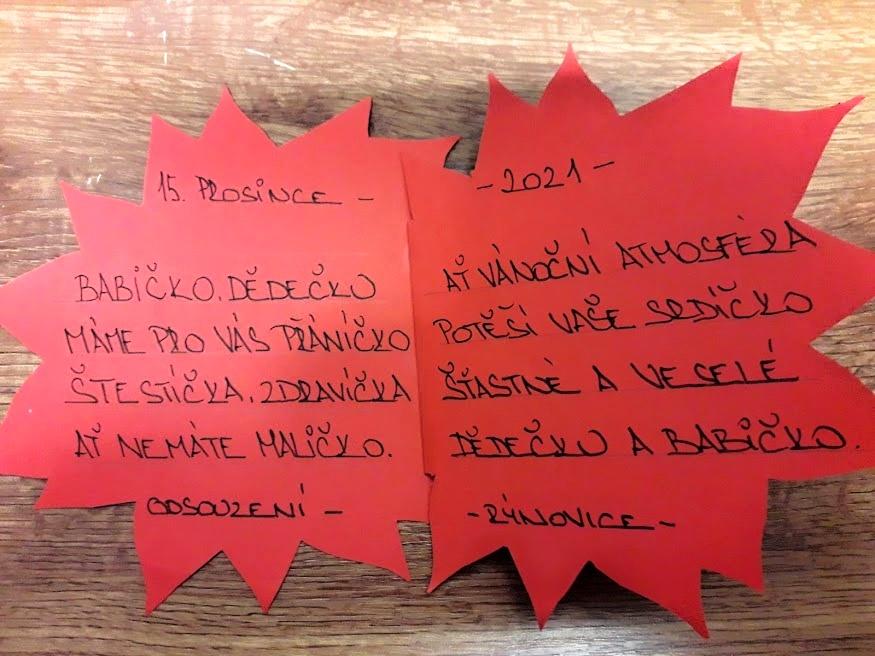 15. PROSINCE -
BABIČKO, DĚDEČKU
MÁME PRO VÁS PŘÁNÍČKO
ŠTESTÍČKA, ZDRAVÍČKA
AŤ NEMÁTE MALIČKO.
ODSOUZENÍ -
- 2021 -
AŤ VÁNOČNÍ ATMOSFÉRA
POTĚŠÍ VAŠE SRDÍČKO
ŠŤASTNÉ A VESELÉ
DĚDEČKU A BABIČKO.
- RÝNOVICE -